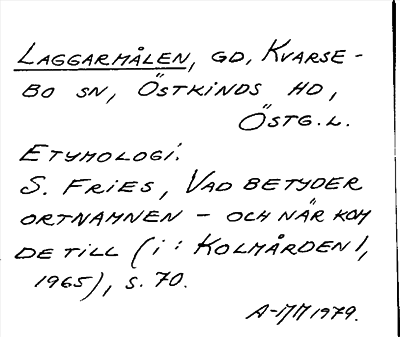 LAGGARMÅLEN, GD, KVARSE-
BO SN, ÖSTKINDS HD,
ÖSTG.L.
ETYMOLOGI:
S. FRIES, VAD BETYDER
ORTNAMNEN – OCH NÄR KOM
DE TILL (i: KOLMÅRDEN 1,
1965), S. 70.
A-MM 1979.